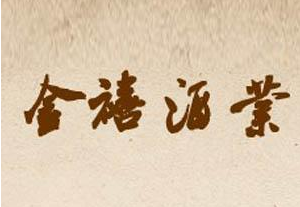 金禧酒業